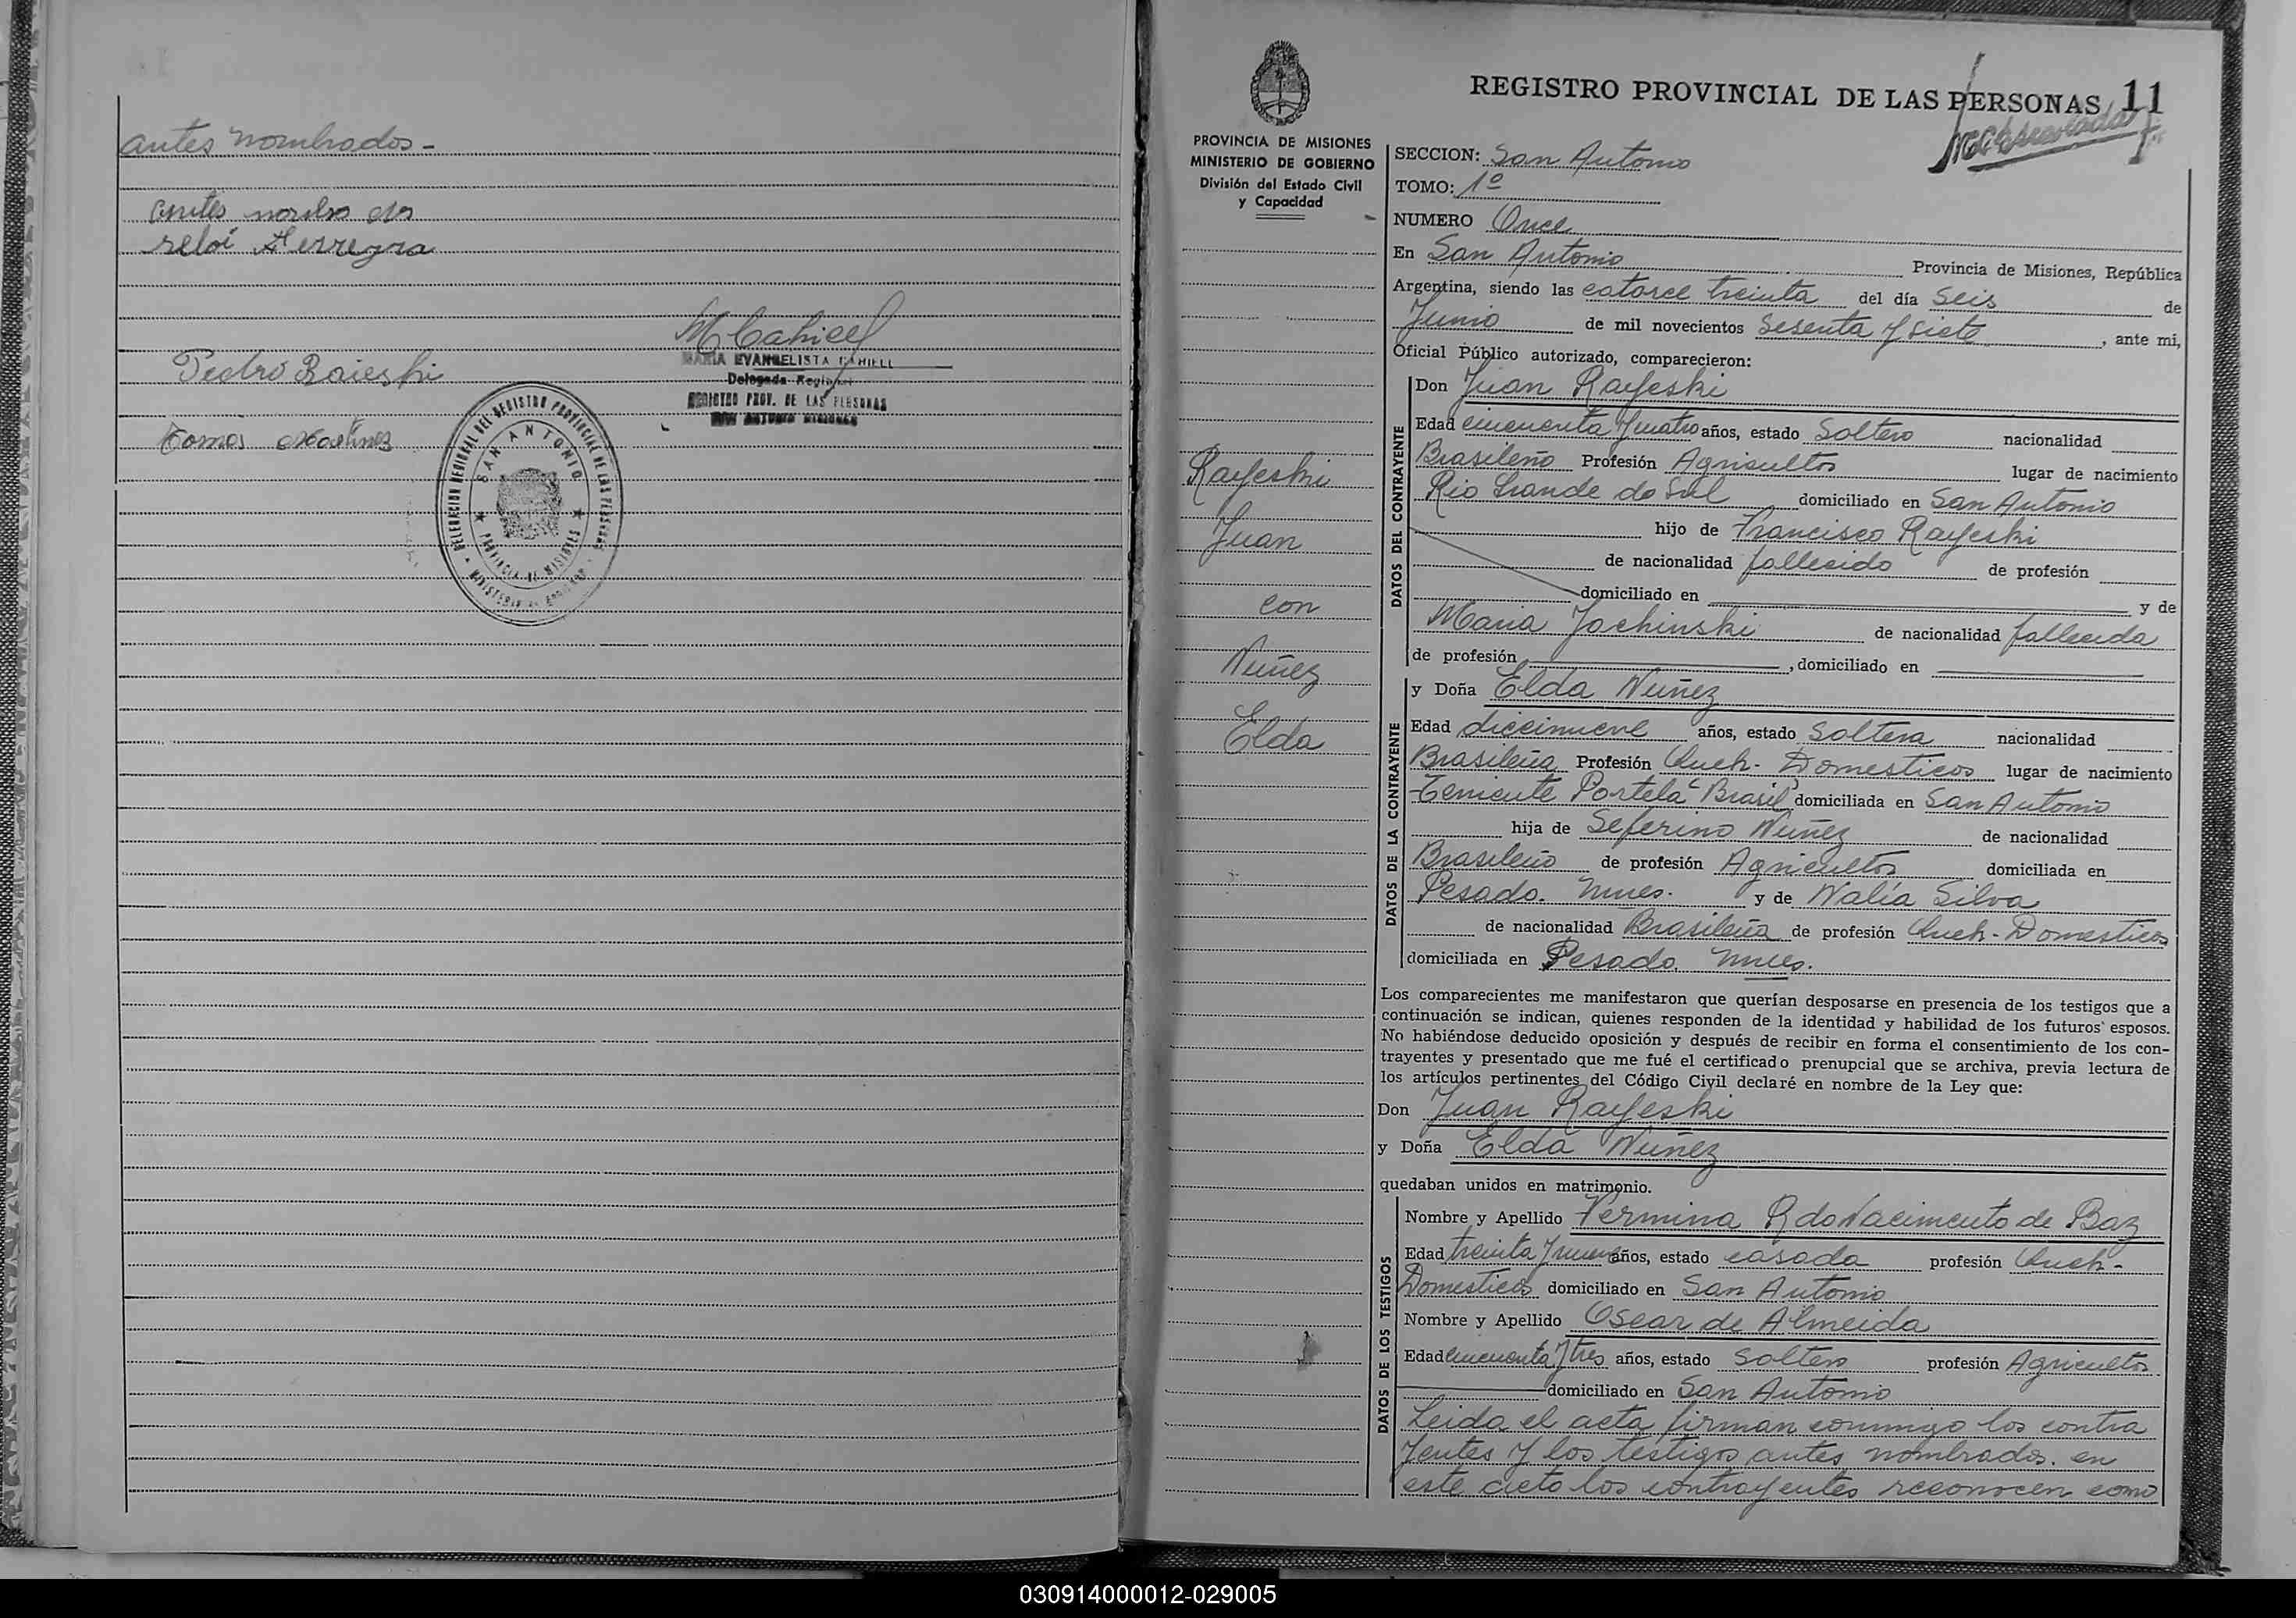 antes nombrados -
antes nombrados
Pedro Raieski
MCahiell
MARIA EVANGELISTA CAHIELL
Delegada Regional
REGISTRO PROV. DE LAS PERSONAS
SAN ANTONIO MISIONES
DELEGACION REGIONAL DEL REGISTRO PROVINCIAL DE LAS PERSONAS
SAN ANTONIO
PROVINCIA DE MISIONES
REGISTRO PROVINCIAL DE LAS PERSONAS 11
PROVINCIA DE MISIONES
MINISTERIO DE GOBIERNO
División del Estado Civil
y Capacidad
Rayeski
Juan
con
Nuñez
Elda
SECCION: San Antonio
TOMO: 1º
NUMERO Once
En San Antonio Provincia de Misiones, República
Argentina, siendo las catorce treinta del día Seis de
Junio de mil novecientos Sesenta y siete, ante mi,
Oficial Público autorizado, comparecieron:
DATOS DEL CONTRAYENTE
Don Juan Rayeski
Edad cincuenta y cuatro años, estado Soltero nacionalidad
Brasileño Profesión Agricultor lugar de nacimiento
Rio Grande do Sul domiciliado en San Antonio
hijo de Francisco Rayeski
de nacionalidad fallecido de profesión
domiciliado en y de
Maria Jochinski de nacionalidad fallecida
de profesión , domiciliado en
DATOS DE LA CONTRAYENTE
y Doña Elda Nuñez
Edad diecinueve años, estado Soltera nacionalidad
Brasileña Profesión Queh. Domesticos lugar de nacimiento
Teniente Portela "Brasil" domiciliada en San Antonio
hija de Seferino Nuñez de nacionalidad
Brasileño de profesión Agricultor domiciliada en
Pesado. Mnes. y de Nalia Silva
de nacionalidad Brasileña de profesión Queh-Domesticos
domiciliada en Pesado. Mnes.
Los comparecientes me manifestaron que querían desposarse en presencia de los testigos que a
continuación se indican, quienes responden de la identidad y habilidad de los futuros esposos.
No habiéndose deducido oposición y después de recibir en forma el consentimiento de los con-
trayentes y presentado que me fué el certificado prenupcial que se archiva, previa lectura de
los artículos pertinentes del Código Civil declaré en nombre de la Ley que:
Don Juan Rayeski
y Doña Elda Nuñez
quedaban unidos en matrimonio.
DATOS DE LOS TESTIGOS
Nombre y Apellido Fermina R do Nacimento de Baz
Edad treinta y nueve años, estado casada profesión Queh-
Domesticos domiciliado en San Antonio
Nombre y Apellido Oscar de Almeida
Edad cincuenta y tres años, estado Soltero profesión Agricultor
domiciliado en San Antonio
Leida el acta firman conmigo los contra
yentes y los testigos antes nombrados. en
este acto los contrayentes reconocen como
030914000012-029005